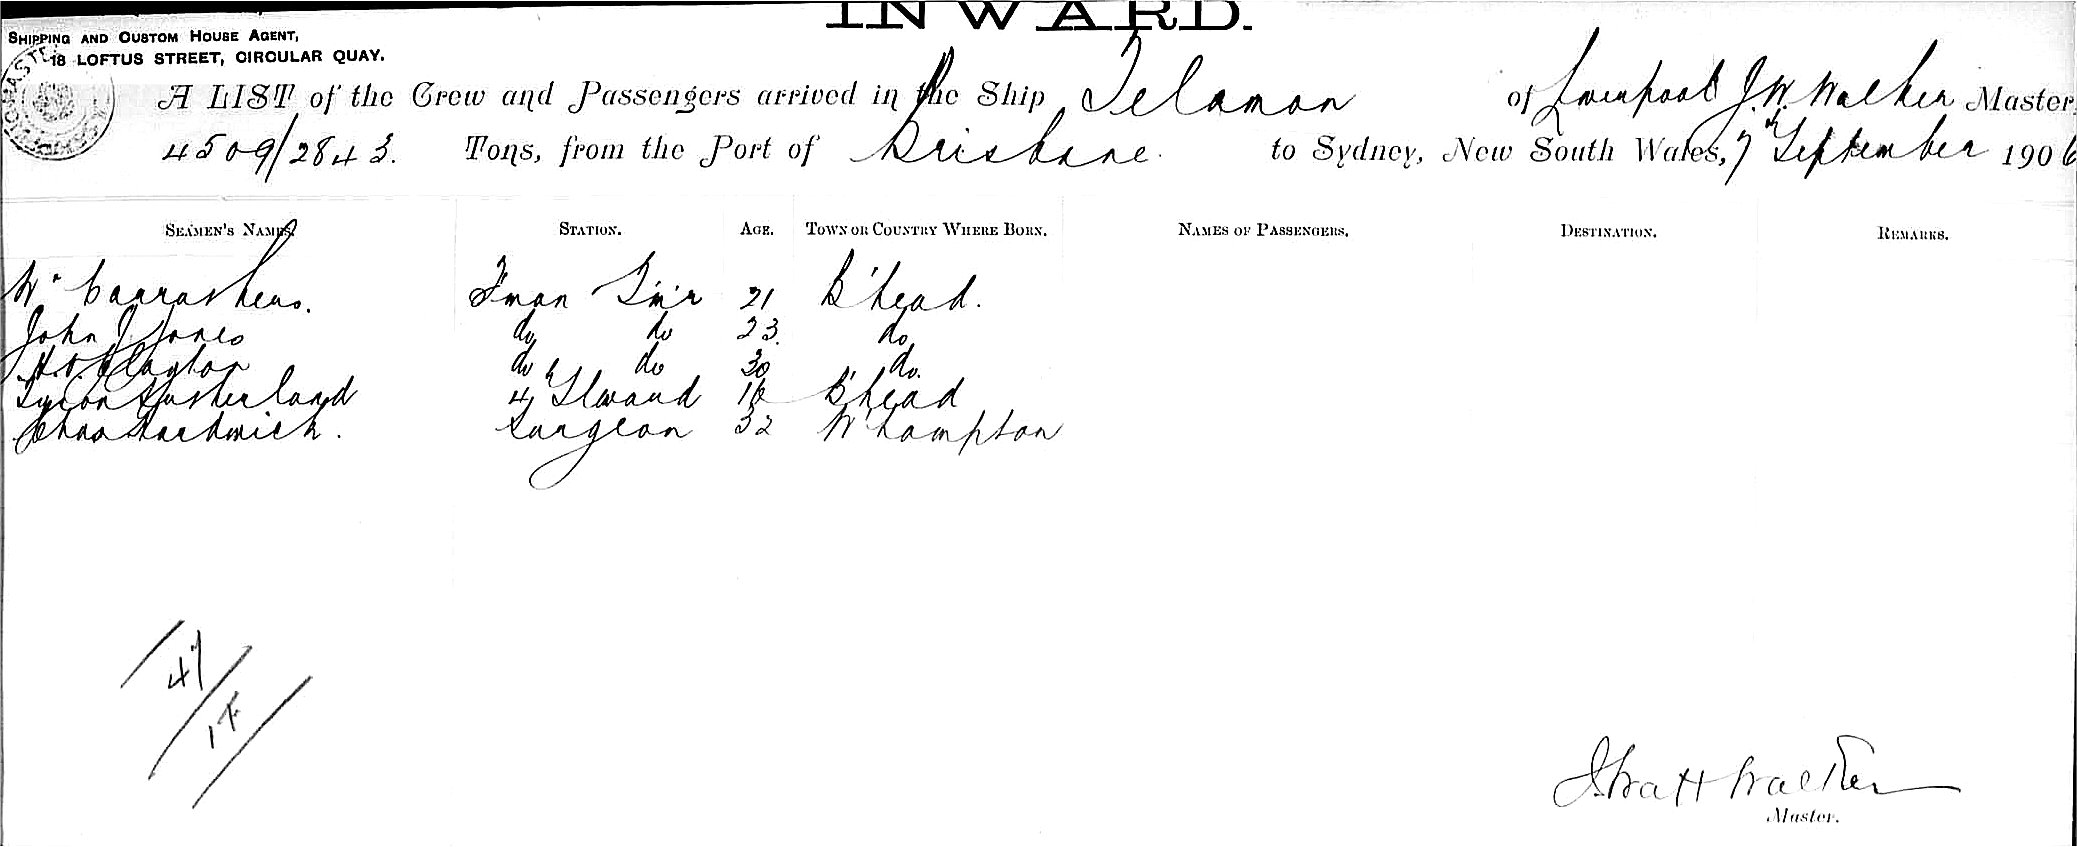 INWARD.
SHIPPING AND CUSTOM HOUSE AGENT,
18 LOFTUS STREET, CIRCULAR QUAY.
A LIST of the Crew and Passengers arrived in the Ship Telamon of Liverpool J. W. Walker Master,
4509/2843. Tons, from the Port of Brisbane to Sydney, New South Wales, 7th September 1906
SEAMEN'S NAMES. STATION. AGE. TOWN OR COUNTRY WHERE BORN. NAMES OF PASSENGERS. DESTINATION. REMARKS.
Wm Carrathers. F'man 21 B'head.
John J. Jones do do 23. do
Clayton do do 30 do.
Sutherland 4th Stward B'head
Chas Hardwick. Surgeon 32 W'hampton
47
Watt Walker
Master.